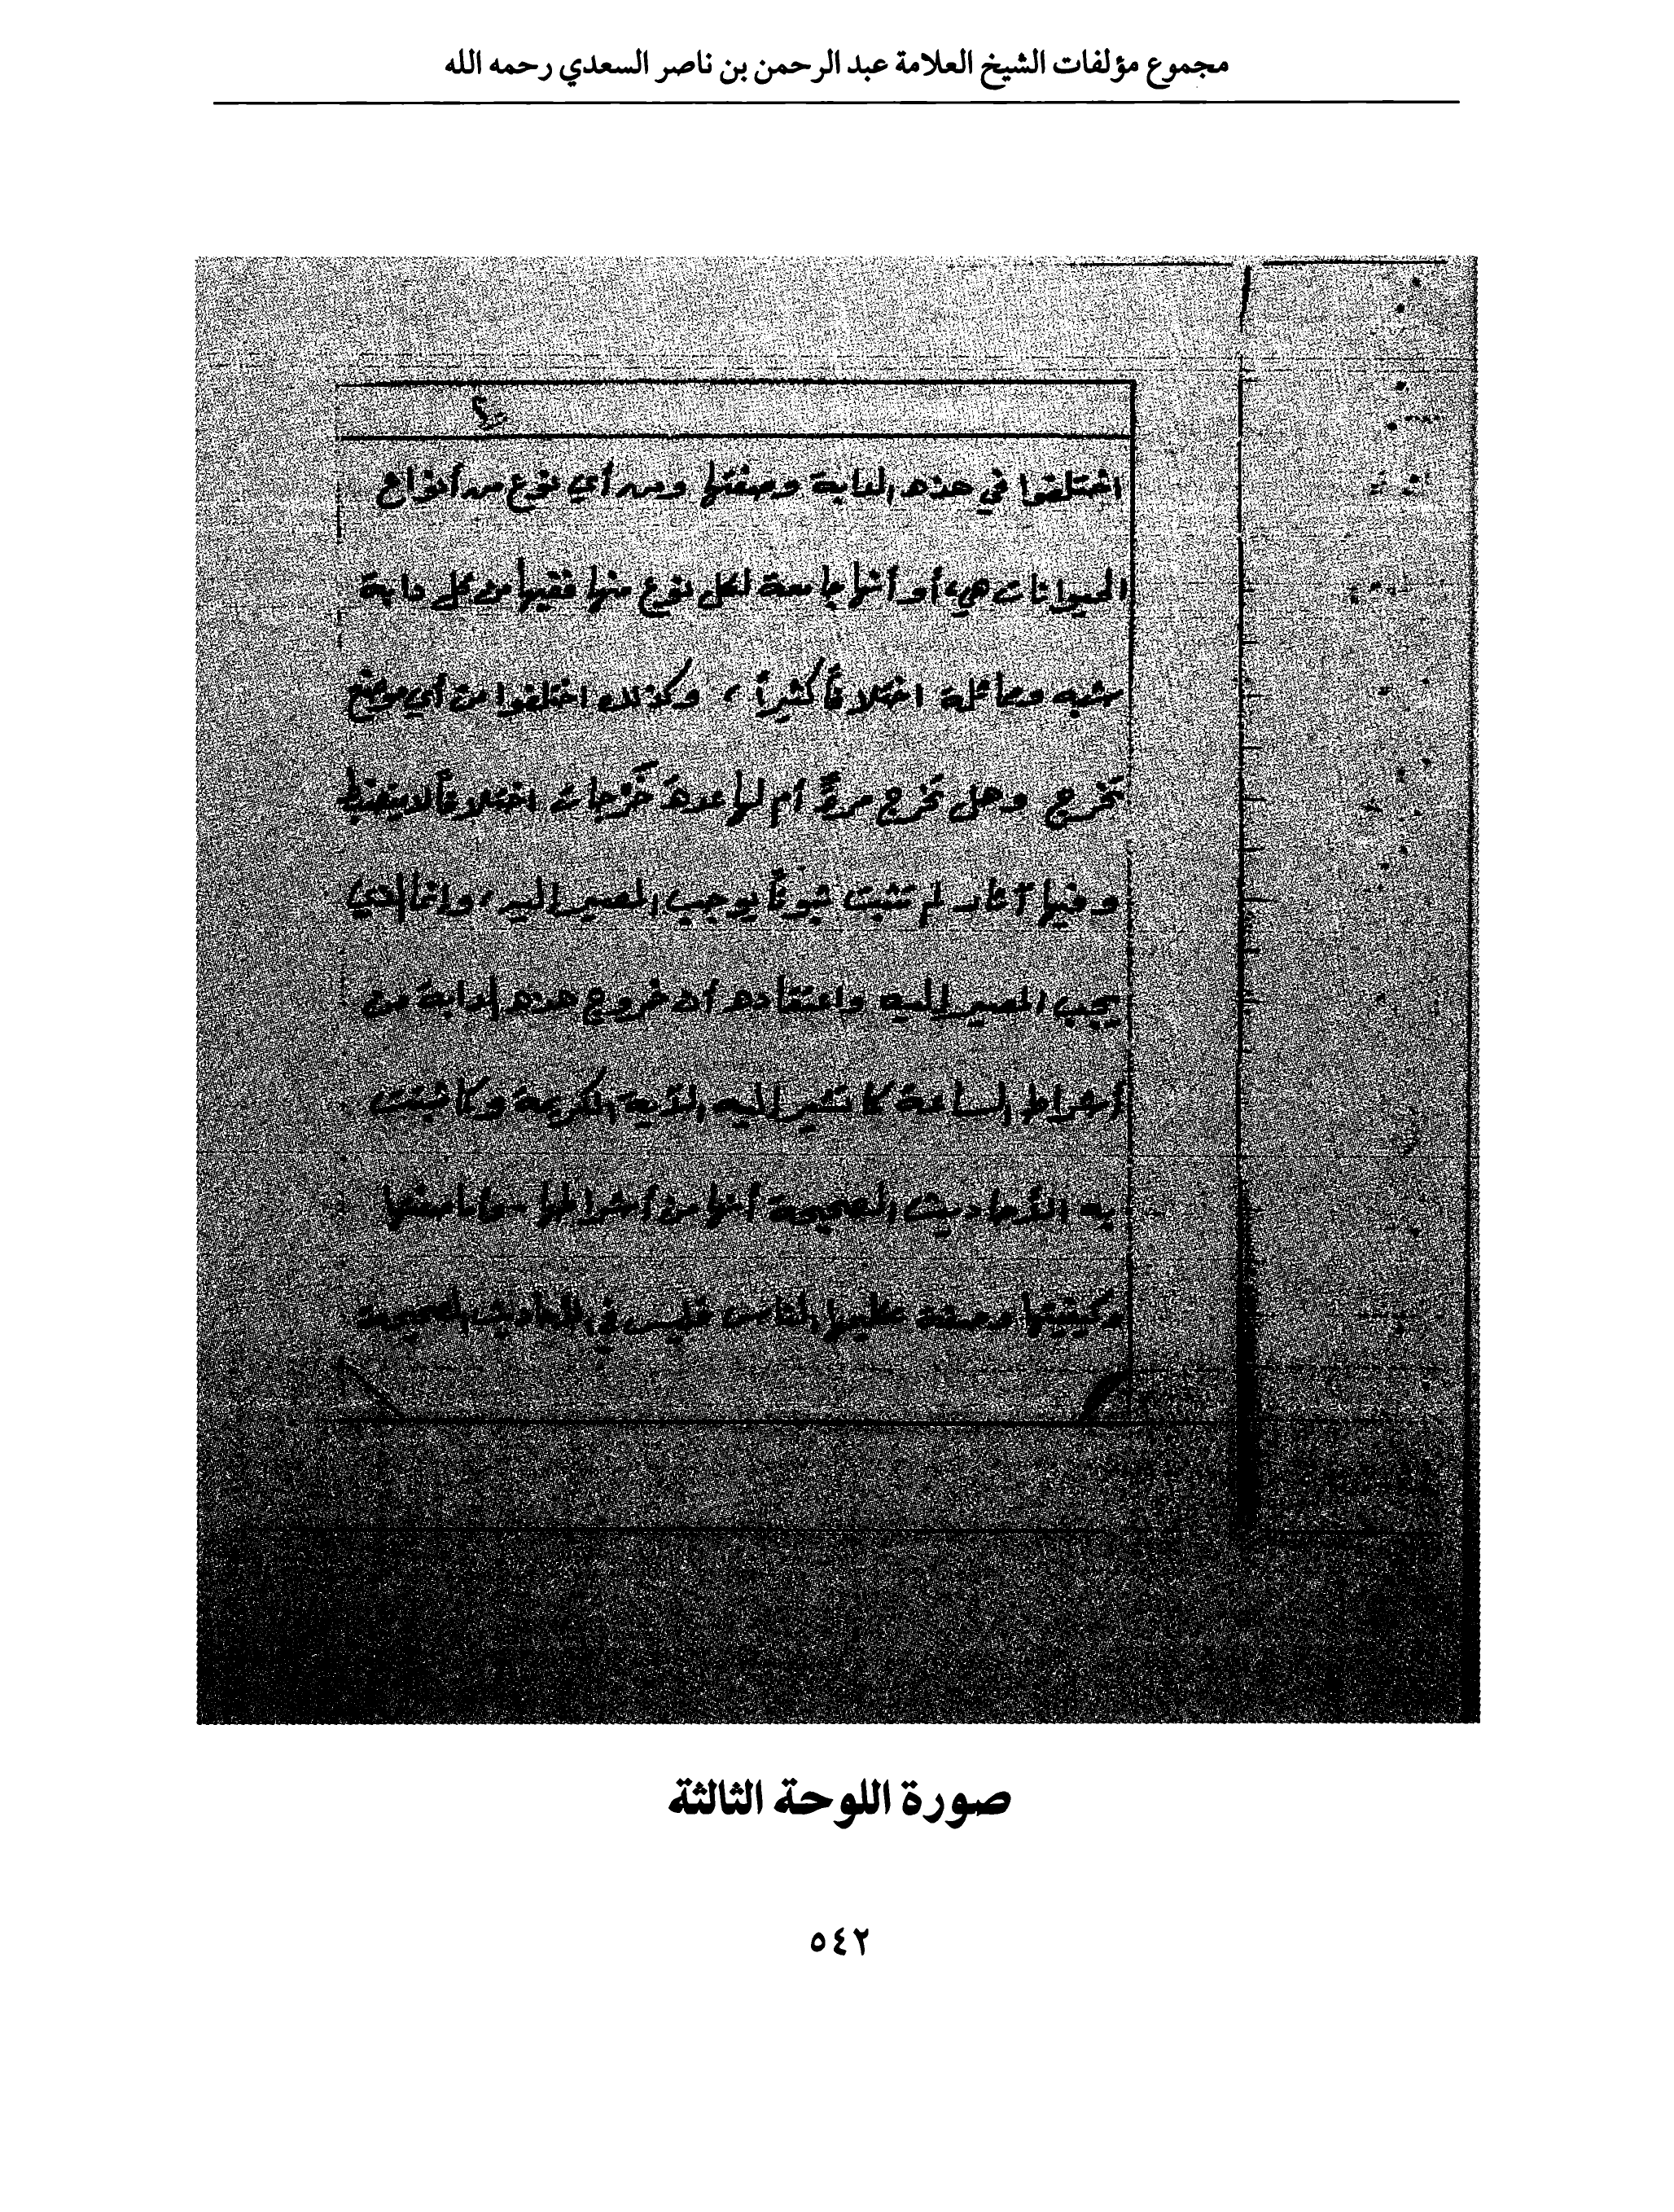 مجموع مؤلفات الشيخ العلامة عبد الرحمن بن ناصر السعدي رحمه الله
اختلفوا في هذه الدابة وصفتها ومن أي نوع من أنواع
الحيوانات هي، أو أنها جامعة لكل نوع منها ففيها من كل دابة
شبه ومماثلة اختلافاً كثيراً، وكذلك اختلفوا من أي موضع
تخرج وهل تخرج مرةً أم لها عدة خَرْجات اختلافاً لا ينضبط
وفيها آثار لم تثبت ثبوتاً يوجب المصير إليه، وإنما الذي
يجب المصير إليه واعتقاده أن خروج هذه الدابة من
أشراط الساعة كما تشير إليه الآية الكريمة وكما ثبتت
به الأحاديث الصحيحة أنها من أشراطها - وأما صفتها
وكيفيتها وصفة الناس فليس في الأحاديث الصحيحة
صورة اللوحة الثالثة
٥٤٢